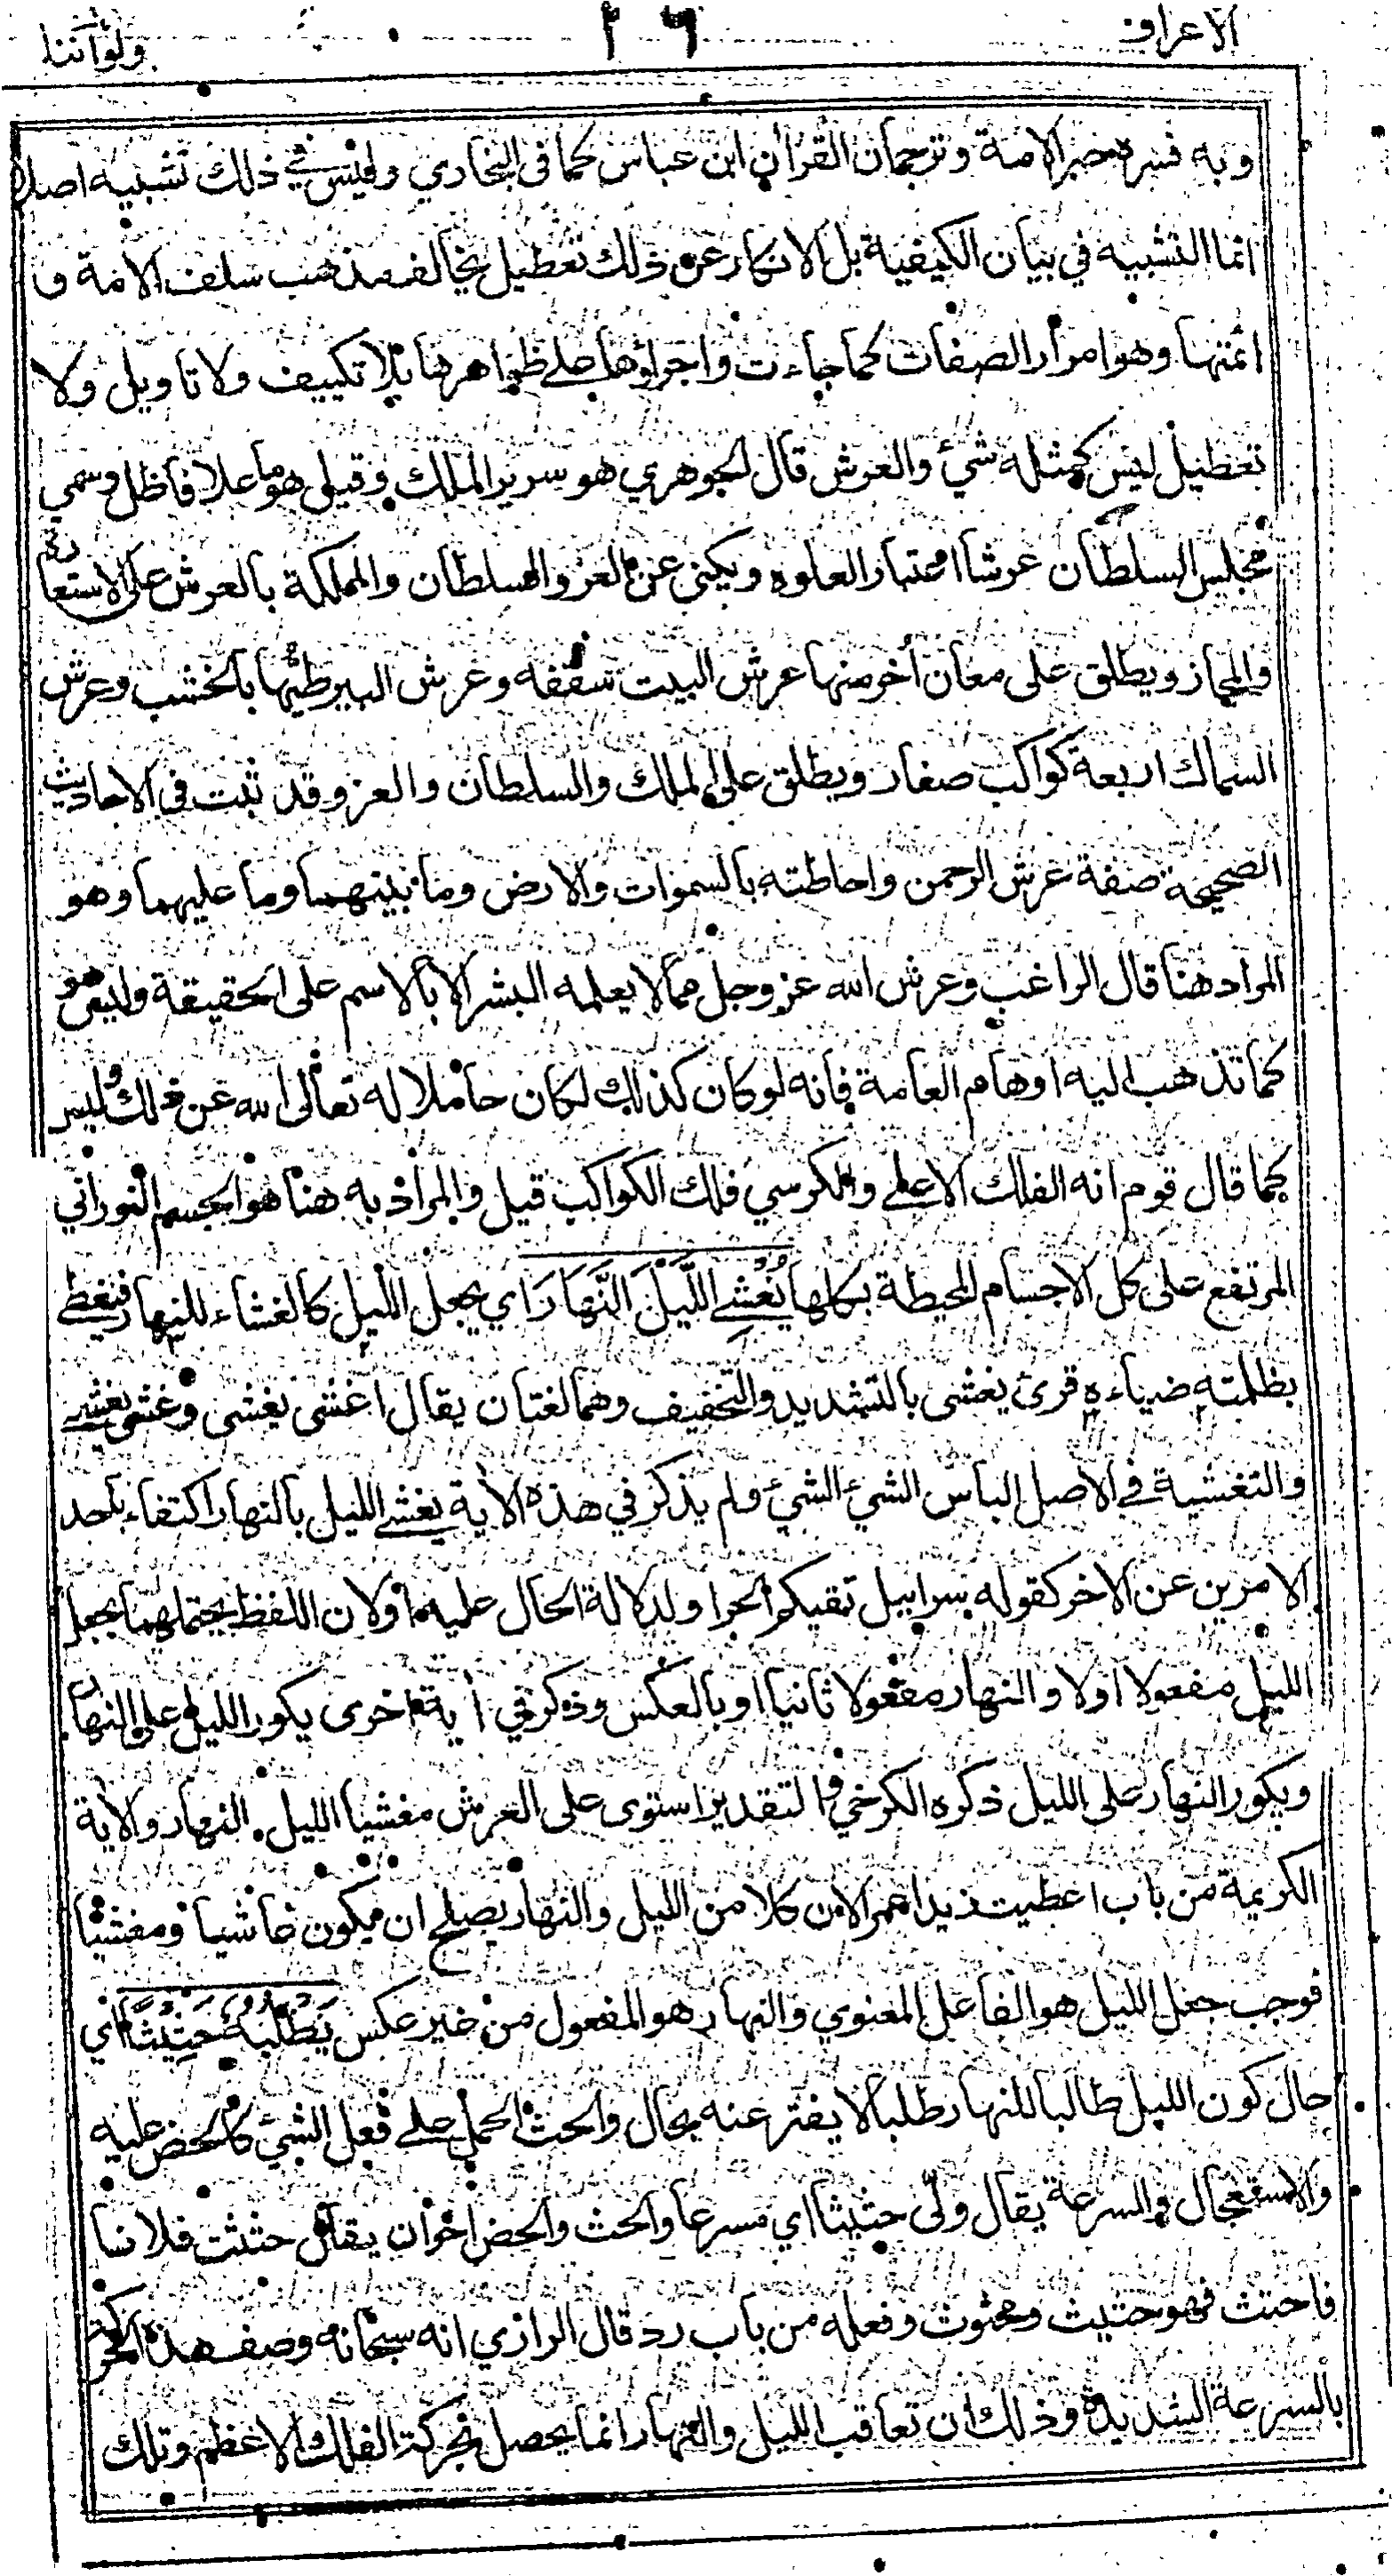 الاعراف ٢٦ ولو أننا
وبه فسره حبر الامة وترجمان القرأن ابن عباس كما في البخاري وليس في ذلك تشبيه اصلا
انما التشبيه في بيان الكيفية بل الانكار عن ذلك تعطيل يخالف مذهب سلف الامة و
ائمتها وهو امرار الصفات كما جاءت واجراؤها على ظواهرها بلا تكييف ولا تاويل ولا
تعطيل ليس كمثله شيئ والعرش قال الجوهري هو سرير الملك وقيل هو ما علا فاظل وسمي
مجلس السلطان عرشا اعتبارا لعلوه ويكنى عن العز والسلطان والمملكة بالعرش على الاستعارة
والمجاز ويطلق على معان أخر منها عرش البيت سقفه وعرش البير طيها بالخشب وعرش
السماك اربعة كواكب صغار ويطلق على الملك والسلطان والعز وقد ثبت في الاحاديث
الصحيحة صفة عرش الرحمن واحاطته بالسموات والارض وما بينهما وما عليهما وهو
المراد هنا قال الراغب وعرش الله عز وجل مما لا يعلمه البشر الا بالاسم على الحقيقة وليس هو
كما تذهب اليه اوهام العامة فانه لو كان كذلك لكان حاملا له تعالى الله عن ذلك وليس
كما قال قوم انه الفلك الاعلى والكرسي فلك الكواكب قيل والمراد به هنا هو الجسم النوراني
المرتفع على كل الاجسام المحيطة بكلها يُغْشِي اللَّيْلَ النَّهَارَ اي يجعل الليل كالغشاء للنهار فيغطي
بظلمته ضياءه قرئ يغشى بالتشديد والتخفيف وهما لغتان يقال اغشى يغشى وغشى يغشي
والتغشية في الاصل الباس الشيئ الشيئ ولم يذكر في هذه الأية يغشي الليل بالنهار اكتفاء باحد
الامرين عن الاخر كقوله سرابيل تقيكم الحر او لدلالة الحال عليه او لان اللفظ يحتملهما بجعل
الليل مفعولا اولا والنهار مفعولا ثانيا او بالعكس وذكر في أية اخرى يكور الليل على النهار
ويكور النهار على الليل ذكره الكرخي والتقدير استوى على العرش مغشيا الليل النهار والاية
الكريمة من باب اعطيت زيدا عمرا لان كلا من الليل والنهار يصلح ان يكون غاشيا ومغشيا
فوجب جعل الليل هو الفاعل المعنوي والنهار هو المفعول من غير عكس يَطْلُبُهُ حَثِيْثًا اي
حال كون الليل طالبا للنهار طلبا لا يفتر عنه بحال والحث الحمل على فعل الشيئ كالحض عليه
والاستعجال والسرعة يقال ولّى حثيثا اي مسرعا والحث والحض اخوان يقال حثثت فلانا
فاحتث فهو حثيث ومحثوث وفعله من باب رد قال الرازي انه سبحانه وصف هذه الحركة
بالسرعة الشديدة وذلك ان تعاقب الليل والنهار انما يحصل بحركة الفلك الاعظم وتلك